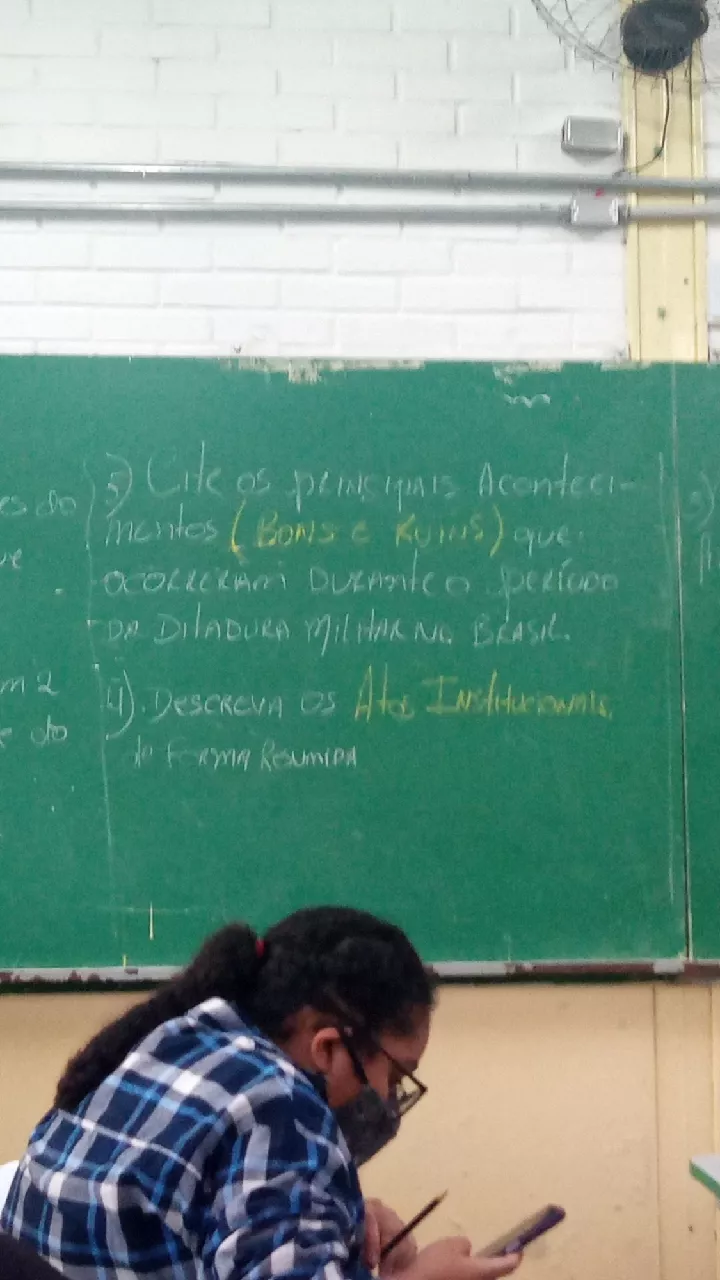 es do
ve
m 2
e do
3) Cite os principais Aconteci-
mentos (Bons e Ruins) que
ocorreram Durante o período
da Ditadura Militar no Brasil.
4). Descreva os Atos Institucionais,
de Forma Resumida